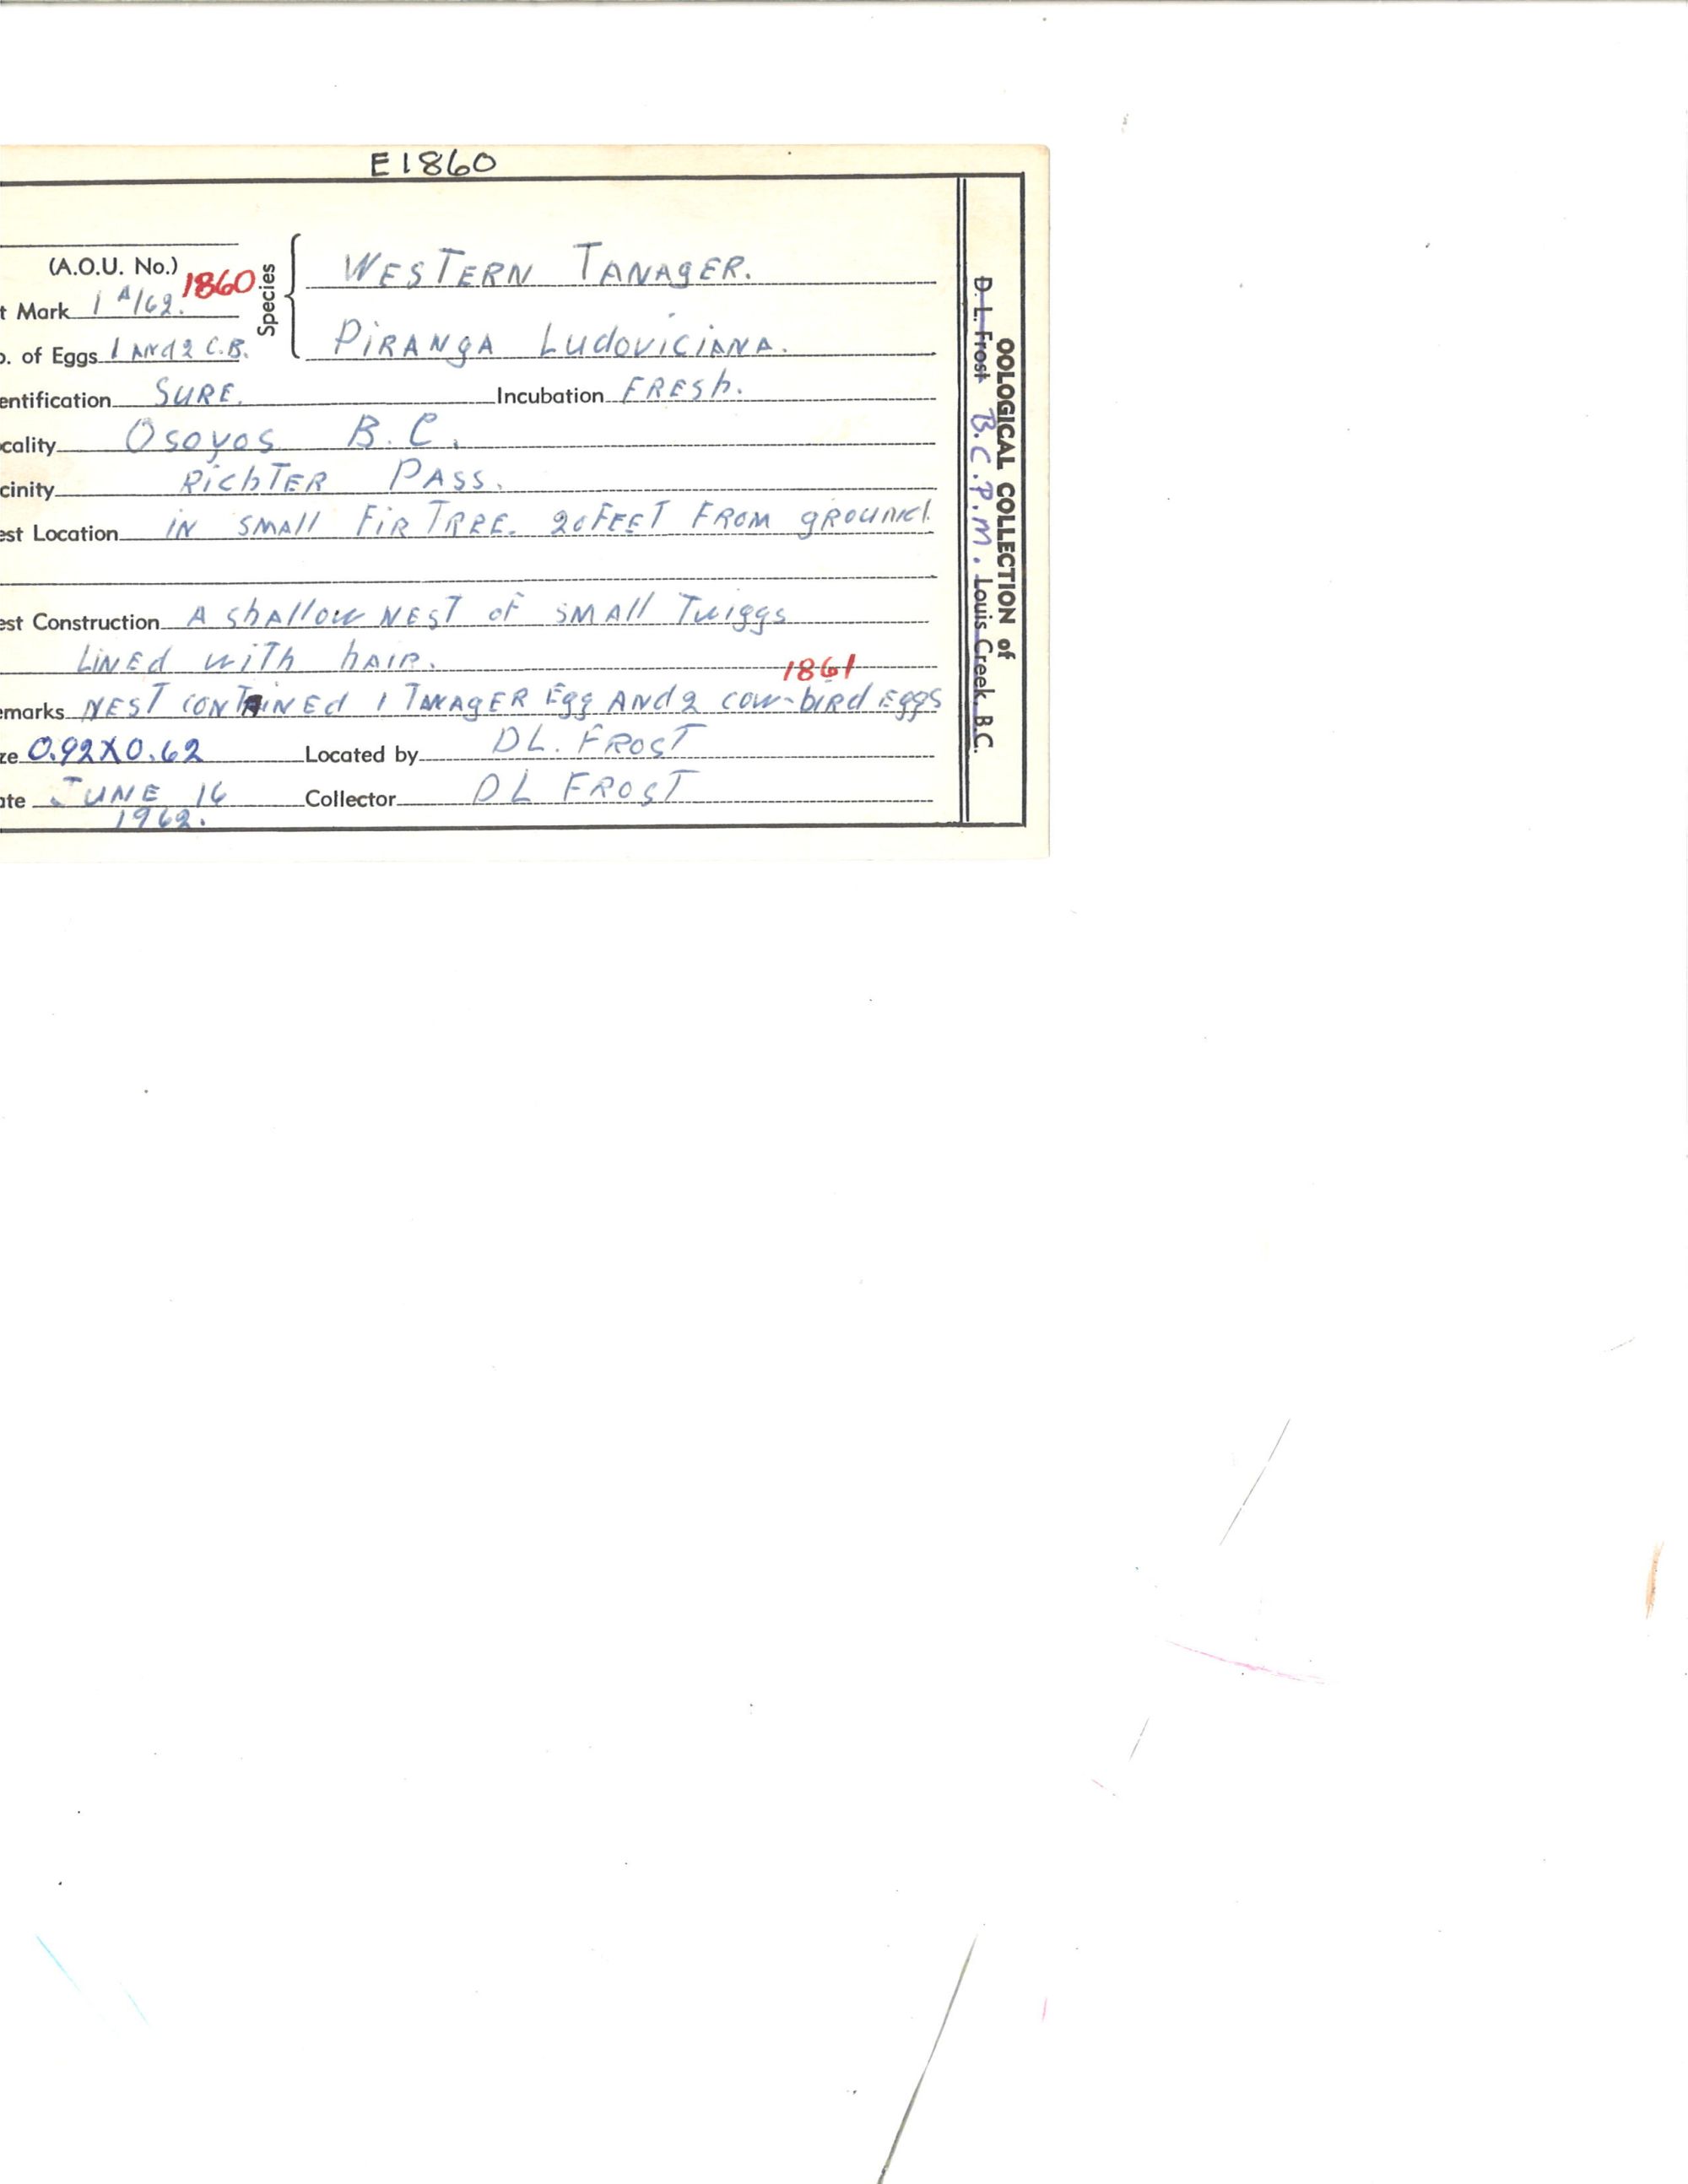 E1860
(A.O.U. No.) 1860
t Mark 1 A/62.
Species
WESTERN TANAGER.
o. of Eggs 1 ANd 2 C.B.
PiRANgA LudoviciANA.
entification SURE. Incubation FRESh.
cality Osoyos B.C.
cinity RichTER PASS.
est Location iN SMAll FiR TREE. 20 FEET FROM gROUNd.
est Construction A shAllow NEST oF SMAll Twiggs
LiNEd wiTh hAiR.
1861
emarks NEST CONTAiNEd 1 TANAgER Egg ANd 2 cow-biRd Eggs
ze 0.92X0.62 Located by DL. FROST
ate JUNE 16 Collector DL FROST
1962.
OOLOGICAL COLLECTION of
D. L. Frost B.C.P.M. Louis Creek, B.C.